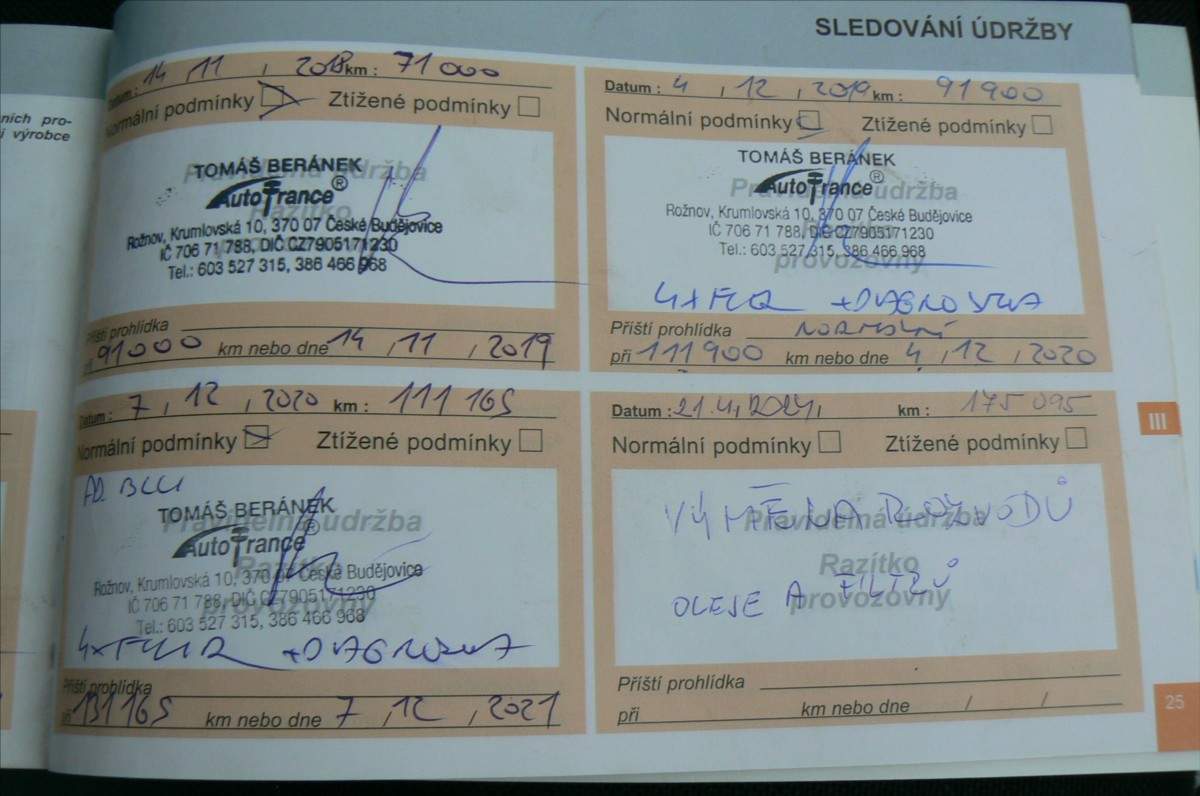 SLEDOVÁNÍ ÚDRŽBY
ních pro-
i výrobce
Datum : 14 , 11 , 2018 km : 71 000
Normální podmínky Ztížené podmínky
TOMÁŠ BERÁNEK
Pravidelná údržba
AutoFrance ®
Razítko
Rožnov, Krumlovská 10, 370 07 České Budějovice
IČ 706 71 788, DIČ CZ7905171230
Tel.: 603 527 315, 386 466 968
Příští prohlídka
při 91000 km nebo dne 14 , 11 , 2019
Datum : 4 , 12 , 2019 km : 91 900
Normální podmínky Ztížené podmínky
TOMÁŠ BERÁNEK
Pravidelná údržba
AutoFrance ®
Rožnov, Krumlovská 10, 370 07 České Budějovice
IČ 706 71 788, DIČ CZ7905171230
Tel.: 603 527 315, 386 466 968
provozovny
4x FILTR + DIAGNOSTIKA
Příští prohlídka NORMÁLNÍ
při 111900 km nebo dne 4 , 12 , 2020
Datum : 7 , 12 , 2020 km : 111 165
Normální podmínky Ztížené podmínky
AD BLUE
TOMÁŠ BERÁNEK
Pravidelná údržba
AutoFrance ®
Razítko
Rožnov, Krumlovská 10, 370 07 České Budějovice
IČ 706 71 788, DIČ CZ7905171230
provozovny
Tel.: 603 527 315, 386 466 968
4x FILTR + DIAGNOSTIKA
Příští prohlídka
při 131165 km nebo dne 7 , 12 , 2021
Datum : 21.4, 2024, km : 175 095
Normální podmínky Ztížené podmínky
VÝMĚNA ROZVODŮ
Pravidelná údržba
Razítko
OLEJE A FILTRŮ
provozovny
Příští prohlídka
při km nebo dne / /
III
25